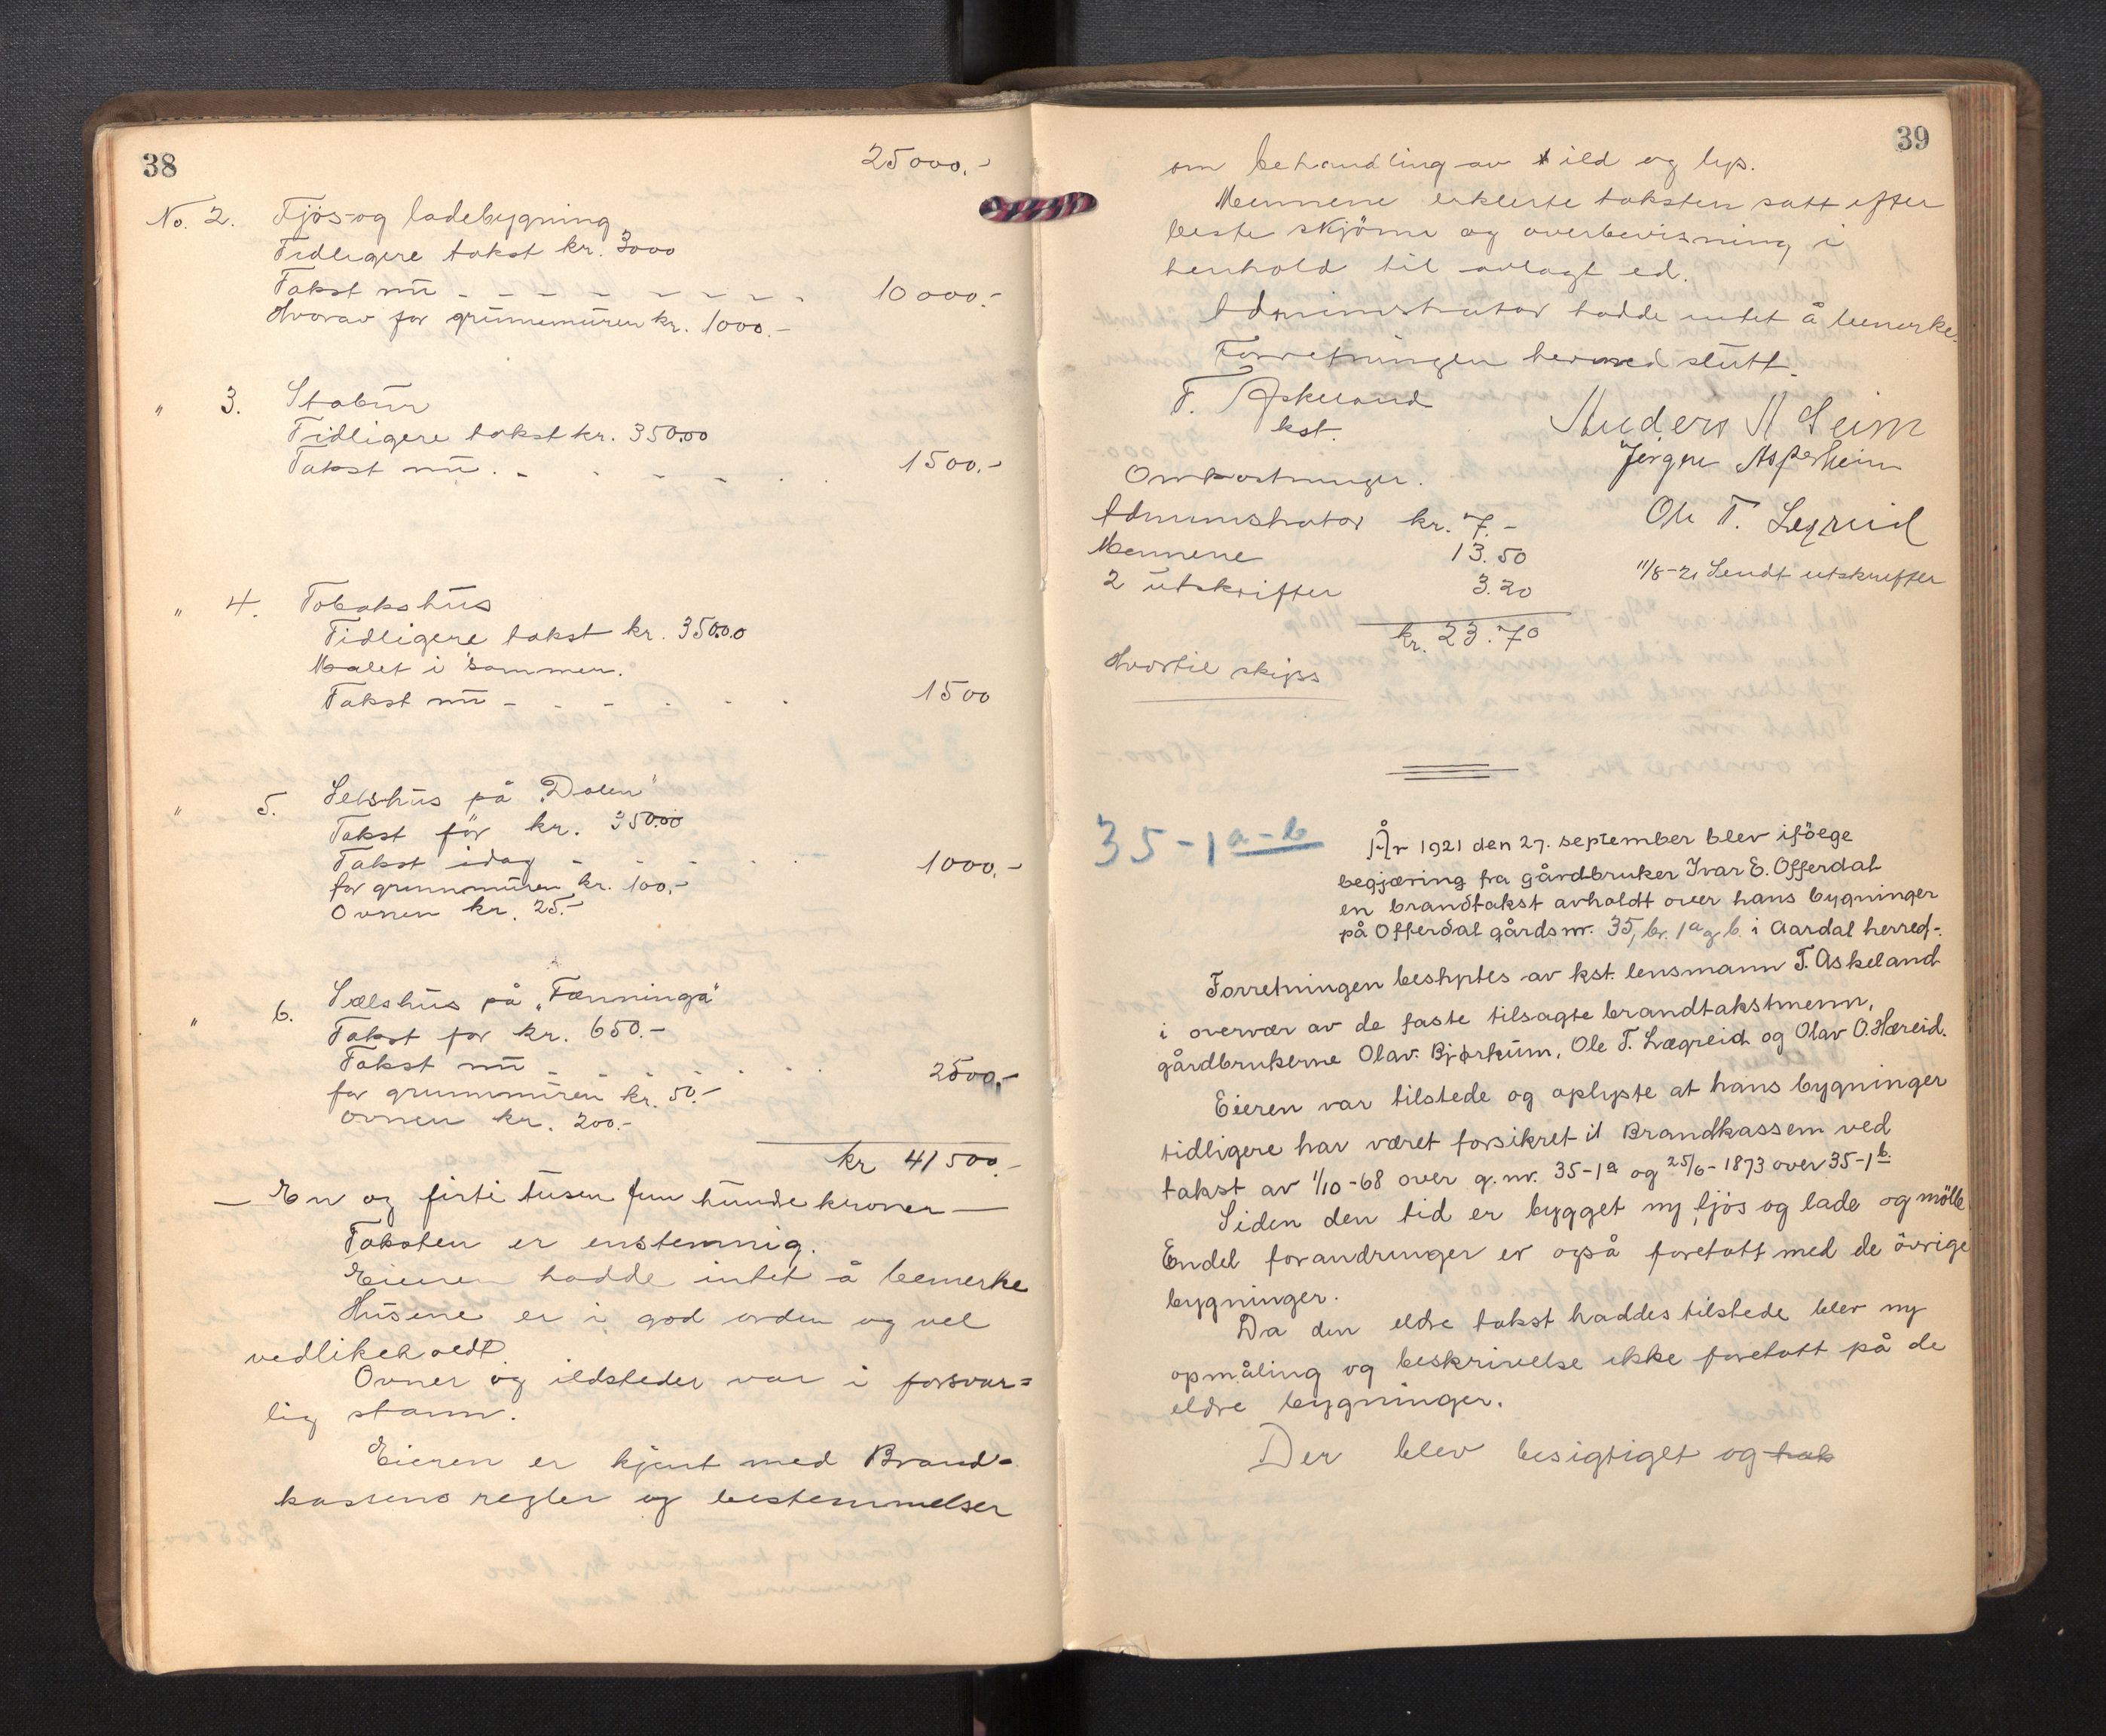 38
25000.-
No. 2. Fjös-og ladebygning
Tidligere takst kr. 3000
Takst nu - - - - - - - - 10000.-
Hvorav for grunnmuren kr. 1000.-
" 3. Stabur
Tidligere takst kr. 350.00
Takst nu. - - - - - . . 1500.-
" 4. Tobakshus
Tidligere takst kr. 350.00
Malet i sommer.
Takst nu - - - - - - 1500
" 5. Selshus på "Dalen"
Takst för kr. 350.00
Takst idag - - - - - . 1000.-
for grunnmuren kr. 100,-
Ovnen kr. 25.-
" 6. Sælshus på "Fænninga"
Takst for kr. 650.-
Takst nu - - - - - . . 2500.-
for grunnmuren kr. 50.-
ovnen kr. 200.-
kr 41500.-
— En og firti tusen fem hunde kroner —
Taksten er enstemmig.
Eieren hadde intet å bemerke
Husene er i god orden og vel
vedlikeholdt.
Ovner og ildsteder var i forsvar=
lig stann.
Eieren er kjent med Brand=
kassens regler og bestemmelser
39
om behandling av ild og lys.
Mennene erklerte taksten satt efter
beste skjönn og overbevisning i
henhold til avlagt ed.
Administrator hadde intet å bemerke.
Forretningen hermed slutt.
T. Askeland
kst.
Anders A Seim
Jörgen Asperheim
Ole T. Legreid
Omkostninger.
Administrator kr. 7.-
Mennene 13.50
2 utskrifter 3.20
kr. 23.70
11/8-21 Sendt utskrifter
Hvortil skyss
35-1a-b
År 1921 den 27. september blev ifölge
begjæring fra gårdbruker Ivar E. Offerdal
en brandtakst avholdt over hans bygninger
på Offerdal gårds nr. 35, br. 1a og b. i Aardal herred-.
Forretningen bestyrtes av kst. lensmann T. Askeland
i overvær av de faste tilsagte brandtakstmenn,
gårdbrukerne Olav Bjørkum, Ole T. Lægreid og Olav O. Hæreid.
Eieren var tilstede og oplyste at hans bygninger
tidligere har været forsikret il Brandkassem ved
takst av 1/10-68 over g.nr. 35-1a og 25/6-1873 over 35-1b.
Siden den tid er bygget ny fjös og lade og mölle
Endel forandringer er også foretatt med de övrige
bygninger.
Da den eldre takst haddes tilstede blev ny
opmåling og beskrivelse ikke foretatt på de
eldre bygninger.
Der blev besigtiget og tak